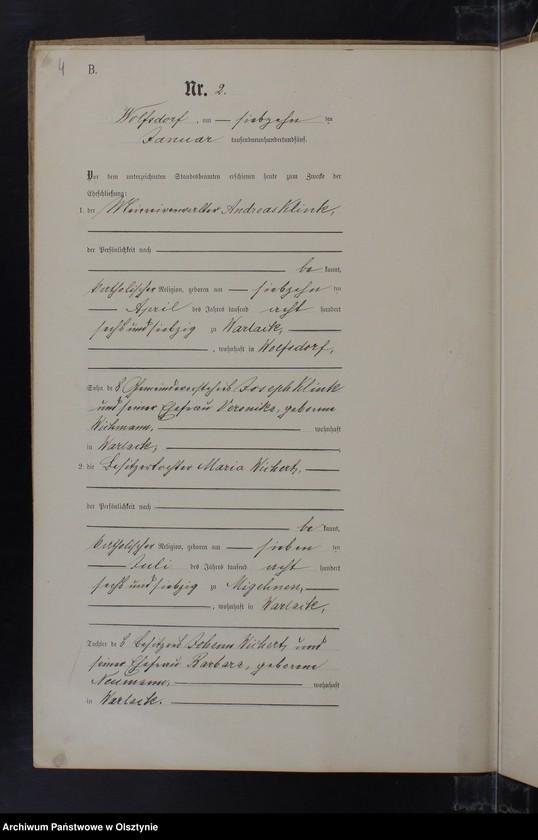 4
B.
Nr. 2.
Wolfsdorf, am — siebzehn ten
Januar tausendneunhundertundfünf.
Vor dem unterzeichneten Standesbeamten erschienen heute zum Zwecke der
Eheschließung:
1. der Meiereiverwalter Andreas Klink,
der Persönlichkeit nach
be kannt,
katholischer Religion, geboren am — siebzehn ten
April des Jahres tausend acht hundert
sechs und siebzig zu Warlack,
, wohnhaft in Wolfsdorf,
Sohn des Gemeindevorstehers Joseph Klink
und seiner Ehefrau Veronika, geborene
Wichmann, wohnhaft
in Warlack,
2. die Besitzertochter Maria Wichert,
der Persönlichkeit nach
be kannt,
katholischer Religion, geboren am — sieben ten
Juli des Jahres tausend acht hundert
sechs und siebzig zu Migehnen,
, wohnhaft in Warlack,
Tochter des Besitzers Johann Wichert und
seiner Ehefrau Barbara, geborene
Neumann, wohnhaft
in Warlack.
Archiwum Państwowe w Olsztynie